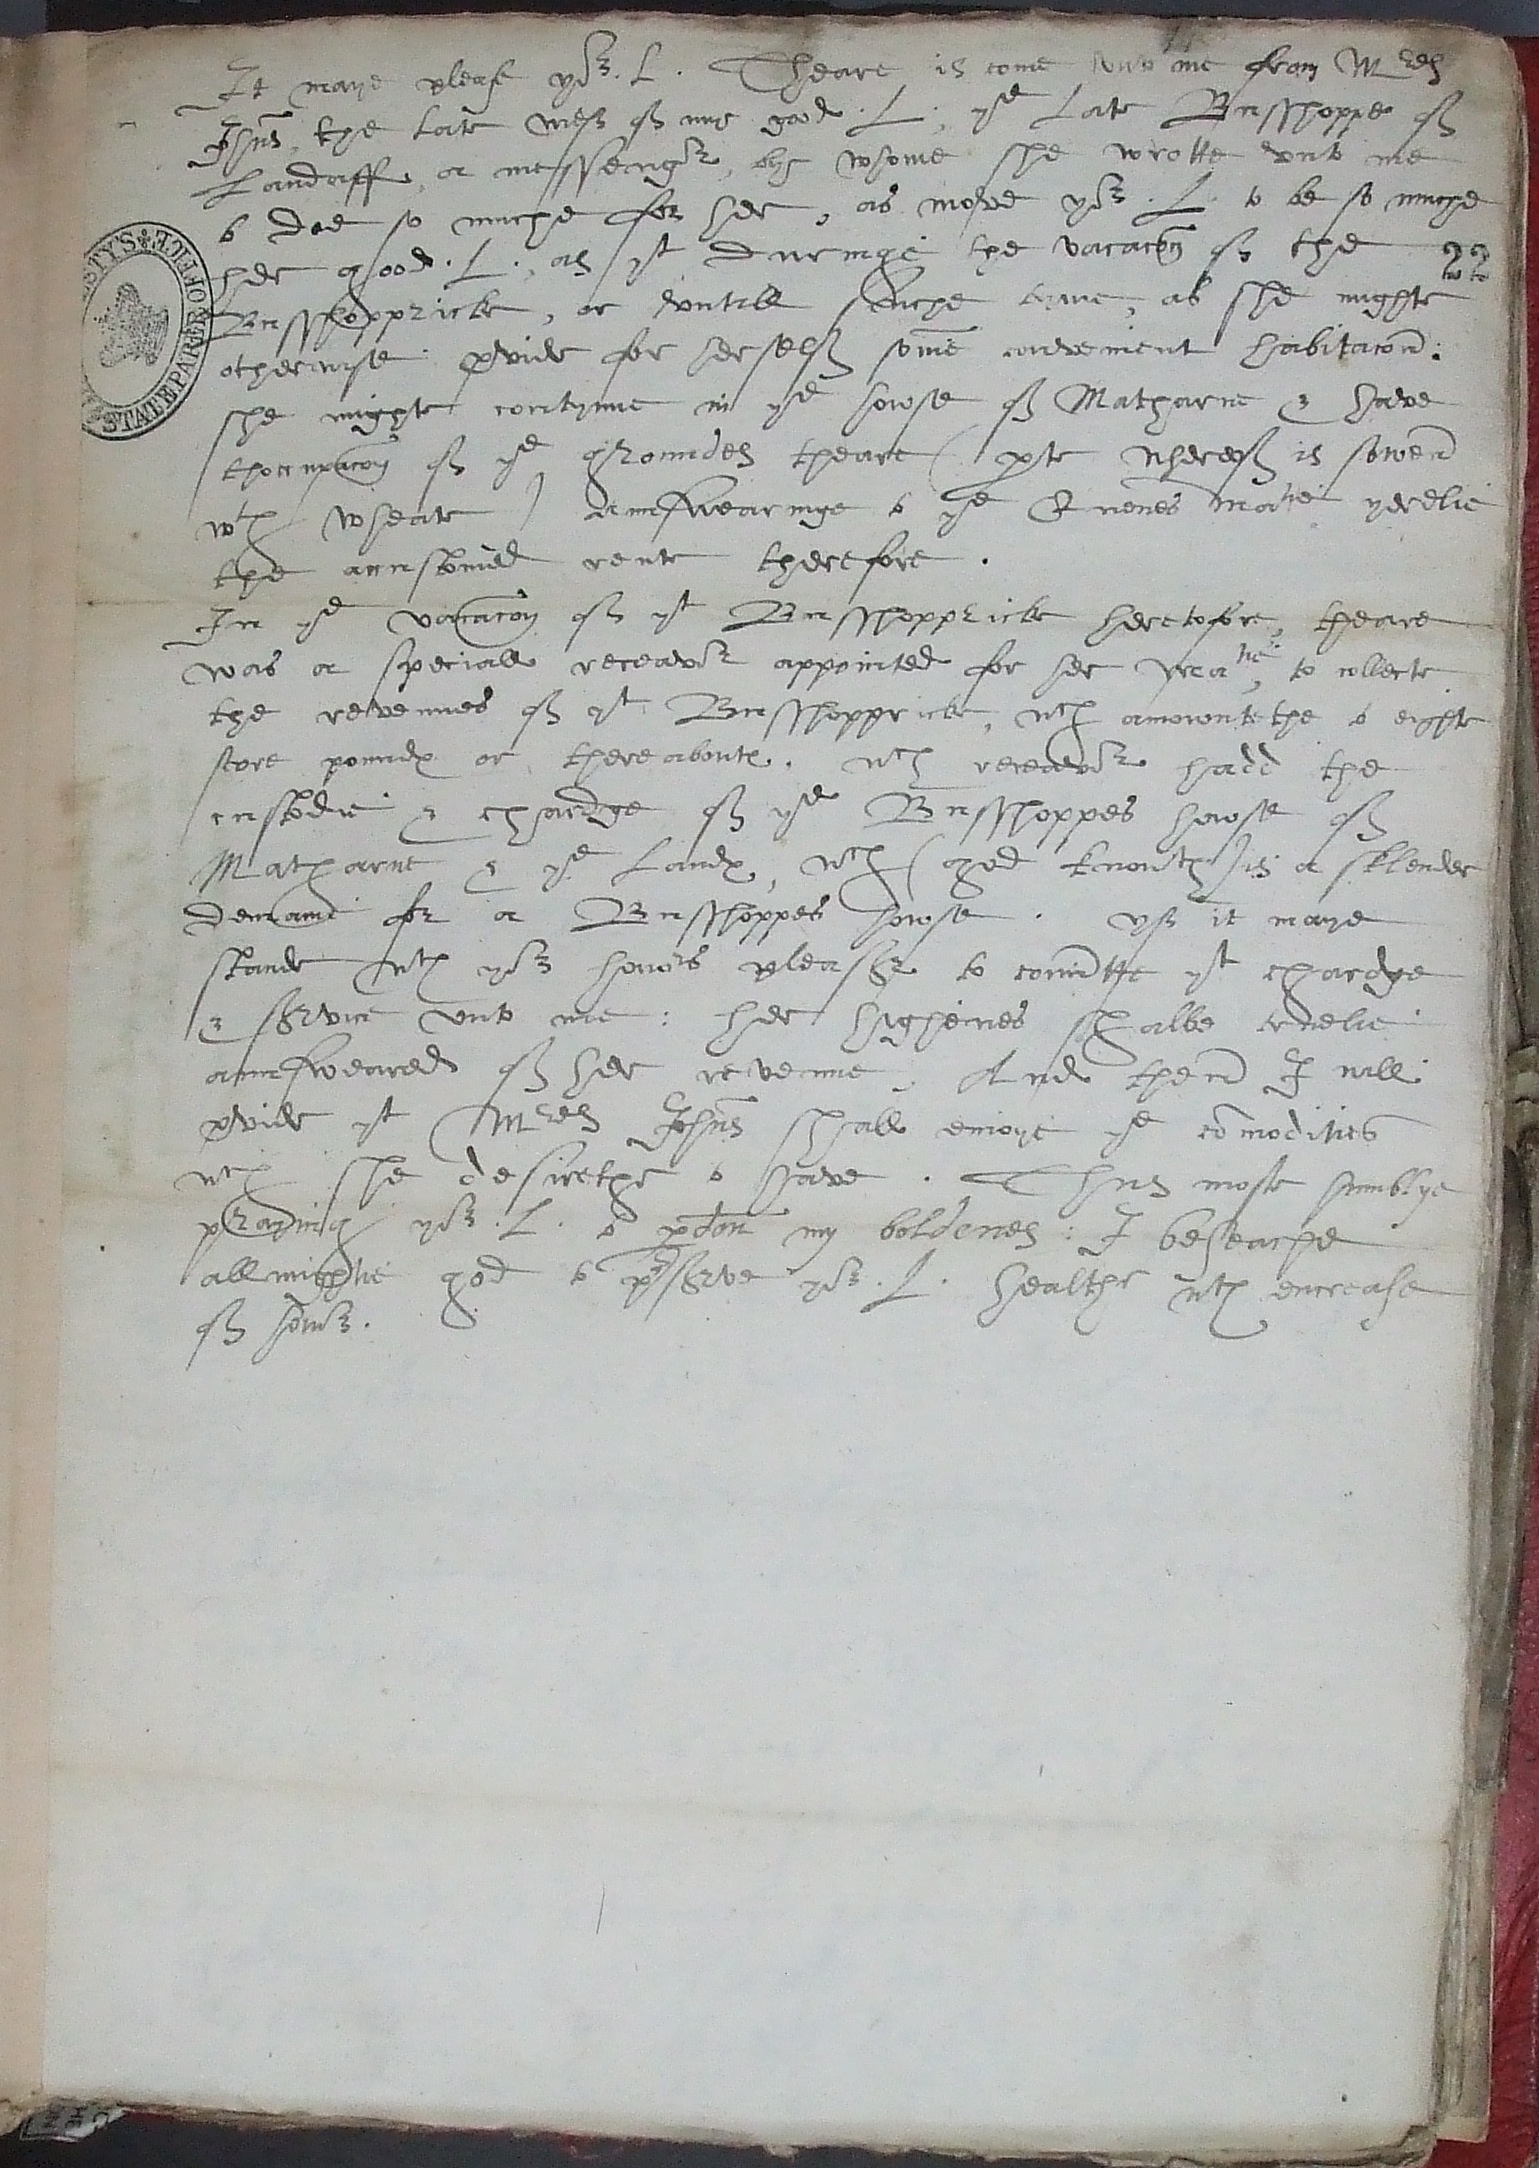 It maye please yor. L. Theare is come vnto me from Mres
Johns, the late wief of my good .L. ye late Busshoppe of
Landaff, a messengr, by whome she wrotte vnto me
to doe so muche for her, as move yor .L. to be so muche
her good .L., as yt duringe the vacacon of the
Busshoppricke, or vntill suche tyme, as she mighte
otherwise pvide for herself some convenient habitacon:
she mighte contynue in ye howse of Matharne & have
thoccupacon of ye groundes theare (pte wherof is sowen
wth wheate) aunswearinge to ye Quenes Matie yerelie
the accustomed rente therefore.
In ye vacacon of yt Busshoppricke heretofore, theare
was a speciall receavor appointed for her Matie, to collecte
the revenues of yt Busshoppricke, wch amountethe to eighte
score poundes or thereaboutes. wch receavor hadd the
custodie & chardge of ye Busshoppes howse of
Matharne & ye Landes, wch (god knowth) is a sklender
demaine for a Busshoppes howse. yf it maye
stande wth yor honors pleasr to comitte yt chardge
& service vnto me: her highenes shalbe truelie
aunsweared of her revenue, And then I will
pvide yt Mres Johns shall enioye ye comodities
wch she desirethe to have. Thus moste humblye
prayinge yor .L. to pdon my boldenes: I beseache
allmightie god to pserve yor .L. healthe wth encrease
of honor.
22
STATE PAPER OFFICE